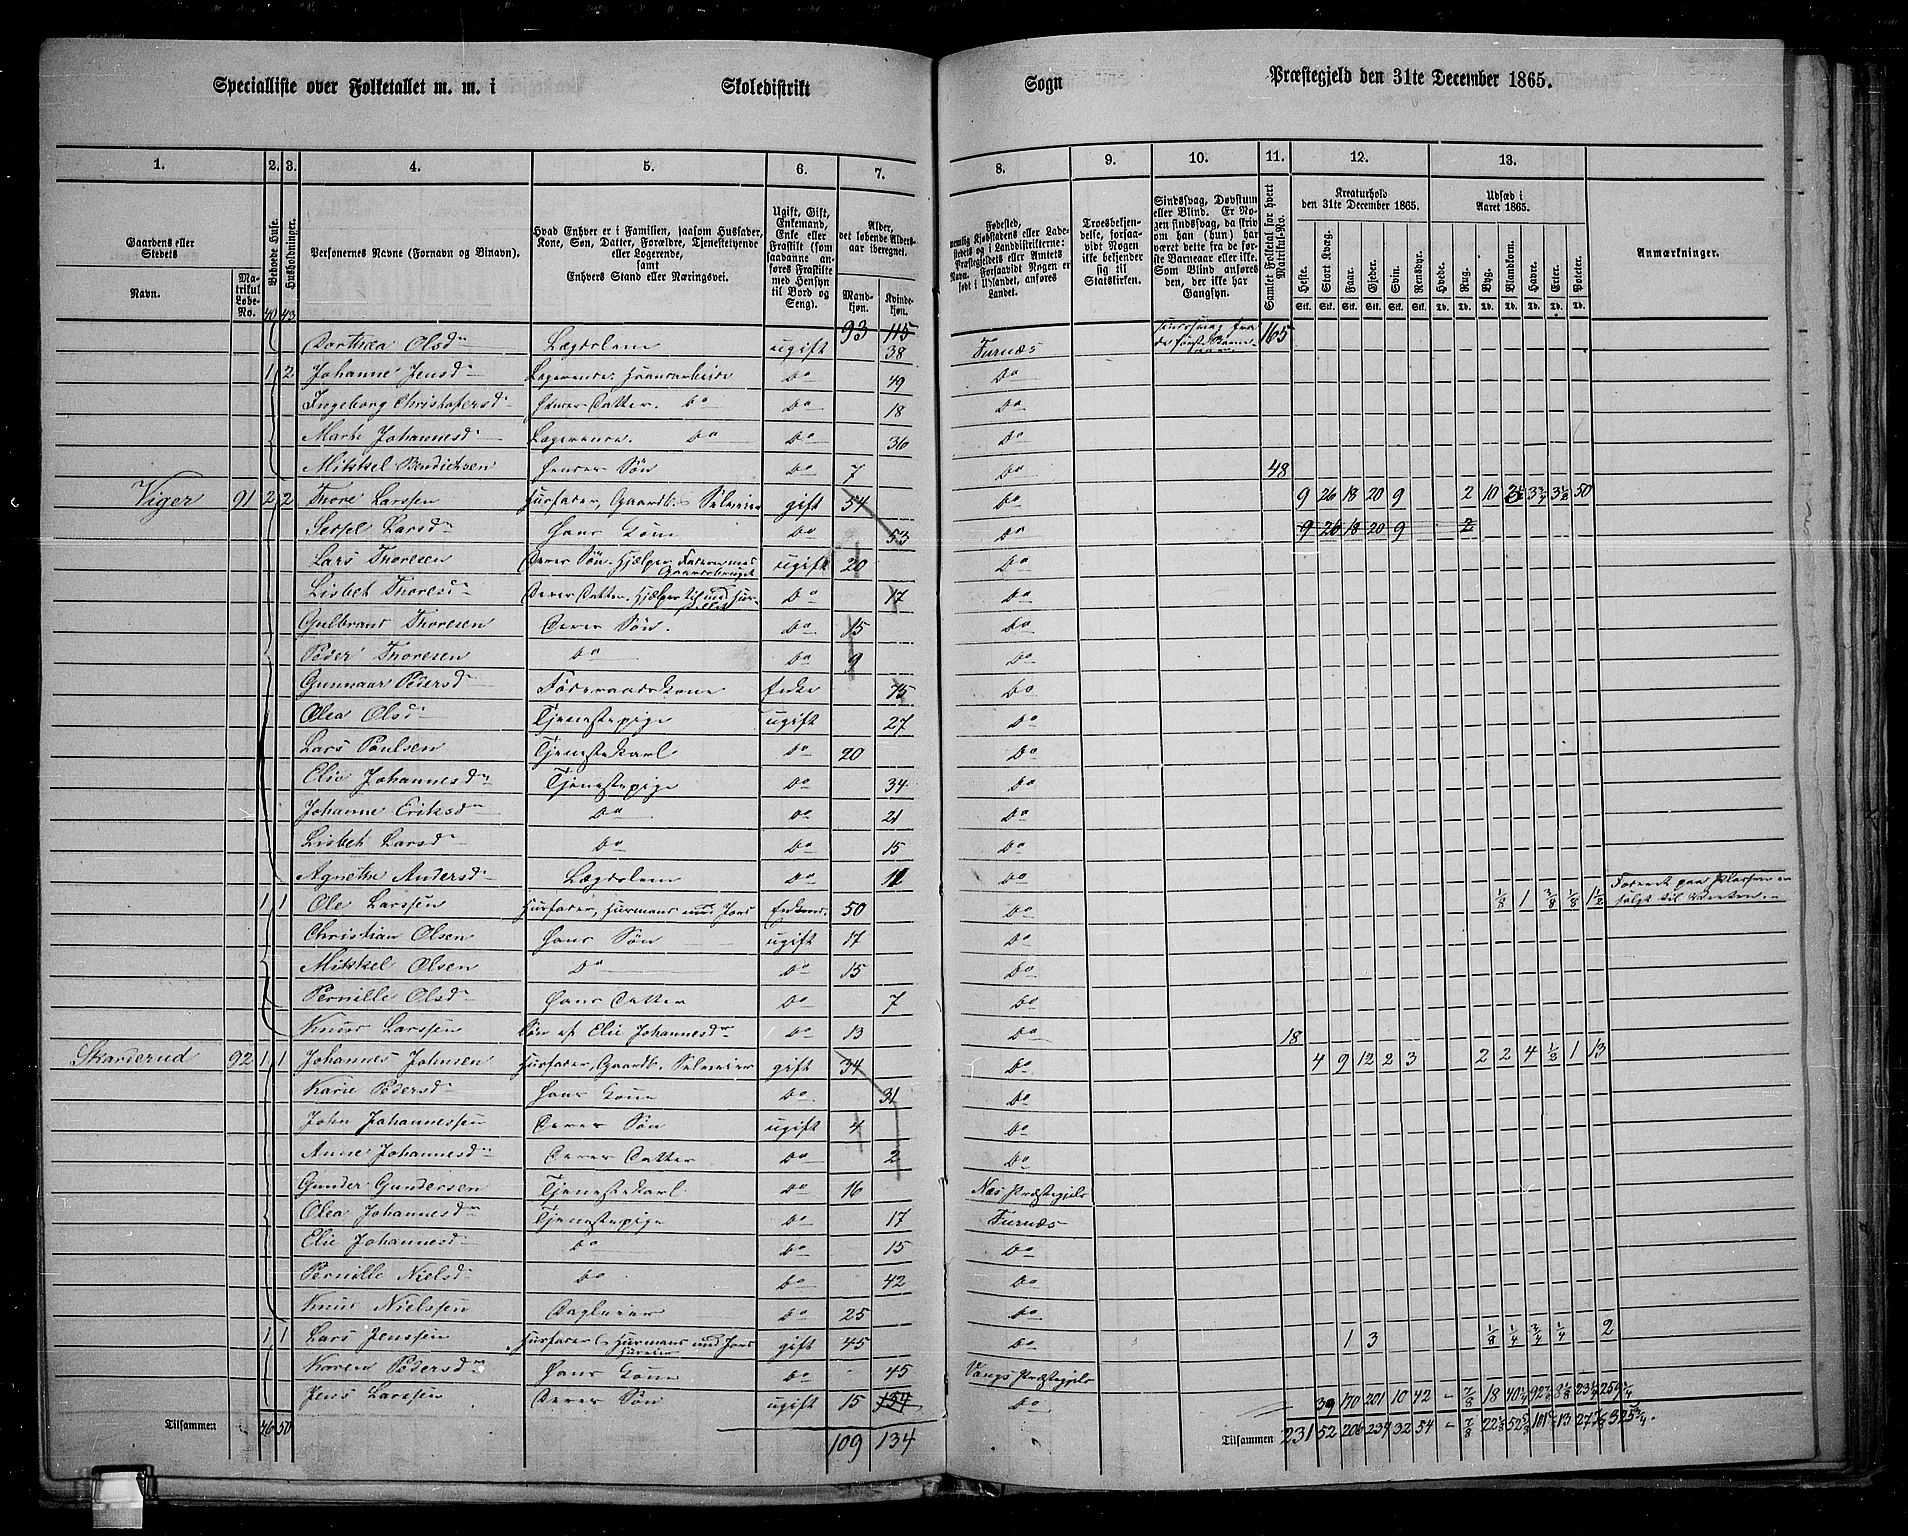 Specialliste over Folketallet m. m. i Skoledistrikt Sogn Præstegjeld den 31te December 1865.
1. 2. 3. 4. 5. 6. 7. 8. 9. 10. 11. 12. 13.
Gaardens eller Stedets Navn. Matrikul Løbe-No. Beboede Huse. Husholdninger. Personernes Navne (Fornavn og Binavn). Hvad Enhver er i Familien, saasom Husfader, Kone, Søn, Datter, Forældre, Tjenestetyende eller Logerende, samt Enhvers Stand eller Næringsvei. Ugift, Gift, Enkemand, Enke eller Fraskilt (som saadanne anføres Fraskilte med Hensyn til Bord og Seng). Alder, det løbende Aldersaar iberegnet. Mandkjøn. Kvindekjøn.
Fødested, nemlig Kjøbstadens eller Ladestedets og i Landdistrikterne: Præstegjeldets eller Amtets Navn. Forsaavidt Nogen er født i Udlandet, anføres Landet. Troesbekjendelse, forsaavidt Nogen ikke bekjender sig til Statskirken. Sindssvag, Døvstum eller Blind. Er Nogen sindssvag, da skriv om han (hun) har været dette fra de første Barneaar eller ikke. Som Blind anføres den, der ikke har Gangsyn. Samlet Folketal for hvert Matrikul-No. Kreaturhold den 31te December 1865. Udsæd i Aaret 1865. Anmærkninger.
Heste. Stort Kvæg. Faar. Gjeder. Svin. Rensdyr. Hvede. Rug. Byg. Blandkorn. Havre. Erter. Poteter.
Stk. Stk. Stk. Stk. Stk. Stk. Td. Td. Td. Td. Td. Td. Td.
40 43 93 115 165
Dorthea Olsd. Lægdslem ugift 38 Furnæs
1 2 Johanne Jensd. Logerende, Haandarbeide Do 49 Do
Ingeborg Christofersd. Hendes Datter. Do Do 18 Do
Marte Johannesd. Logerende. Do Do 36 Do
Mikkel Bendichsen Hendes Søn Do 7 Do 48
Viger 91 2 2 Thore Larssen Husfader, Gaardb. Selveier gift 54 Do 9 26 18 20 9 2 10 50
Sessel Larsd. Hans Kone Do 53 Do 9 26 18 20 9 2
Lars Thoresen Deres Søn. Hjælper Faderen med Gaardsbruget ugift 20 Do
Lisbet Thoresd. Deres Datter. Do 17 Do
Gulbrand Thoresen Deres Søn. Do 15 Do
Peder Thoresen Do Do 9 Do
Gunnaar Pedersd. Føderaadskone Enke 75 Do
Olea Olsd. Tjenestepige ugift 27 Do
Lars Poulsen Tjenestekarl Do 20 Do
Elie Johannesd. Tjenestepige Do 34 Do
Johanne Eriksd. Do Do 21 Do
Lisbeth Larsd. Do Do 15 Do
Agnethe Andersd. Lægdslem Do 11 Do
1 1 Ole Larssen Husfader, Husmand med Jord Enkemd. 50 Do 1/8 1 3/8 1/8 1 1/2
Christian Olsen Hans Søn ugift 17 Do
Mikkel Olsen Do Do 15 Do
Pernille Olsd. Hans Datter Do 7 Do
Knud Larssen Søn af Elie Johannesd. Do 13 Do 18
Skarderud 92 1 1 Johannes Johnsen Husfader, Gaardb. Selveier gift 34 Do 4 9 12 2 3 2 2 4 1/8 1 13
Karie Pedersd. Hans Kone Do 31 Do
John Johannessen Deres Søn ugift 4 Do
Anne Johannesd. Deres Datter Do 2 Do
Gunder Gundersen Tjenestekarl Do 16 Næs Præstegjeld
Olea Johannesd. Tjenestepige Do 17 Furnæs
Elie Johannesd. Do Do 15 Do
Pernille Nielsd. Do Do 42 Do
Knud Nielssen Dagleier Do 25 Do
1 1 Lars Jenssen Husfader, Husmand med Jord gift 45 Do 1 3 1/8 1/4 3/4 1/4 2
Karen Pedersd. Hans Kone Do 45 Vangs Præstegjeld
Jens Larssen Deres Søn ugift 15 134 Do 39 170 201 10 42 - 7/8 18
Tilsammen 46 50 109 134 Tilsammen 231 52 206 237 32 54 - 7/8